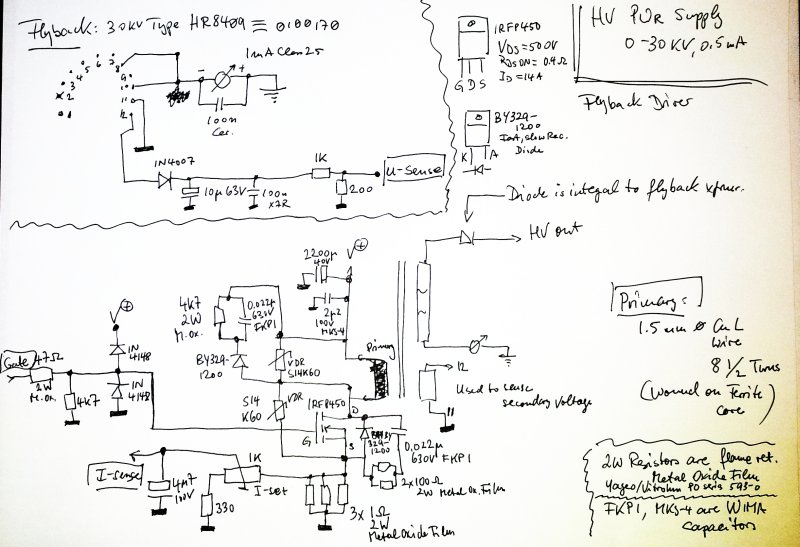 Flyback: 30KV Type HR8409 ≡ 0100170
1mA Class 2.5
- +
5 6 7
4 8
3 9
x 2 10
1 11
12
100n
Cer.
1N4007
10µ 63V
100n
X7R
1K
200
U-Sense
IRFP450
VDS=500V
RDSON=0.4Ω
ID=14A
G D S
BY329-
1200
Diode
K A
HV PWR Supply
0-30KV, 0.5mA
Flyback Driver
Diode is integral to flyback xfmr.
HV out
2200µ
40V
+
2µ2
100V
MKS-4
4K7
2W
M.Ox.
0.022µ
630V
FKP1
BY329-
1200
VDR
S14K60
S14
K60
VDR
Primary
12
Used to sense
secondary voltage
11
Primary:
1.5mm ø CuL
Wire
8 1/2 Turns
(wound on ferrite
core)
+
1N
4148
Gate
47Ω
2W
M.Ox.
4K7
1N
4148
IRFP450
D
G
S
BY
329-
1200
0.022µ
630V FKP1
2x100Ω
2W Metal Ox. Film
I-sense
4µ7
100V
1K
I-set
330
3x 1Ω
2W
Metal Oxide Film
2W Resistors are flame ret.
Metal Oxide Film
FKP1, MKS-4 are WIMA
capacitors